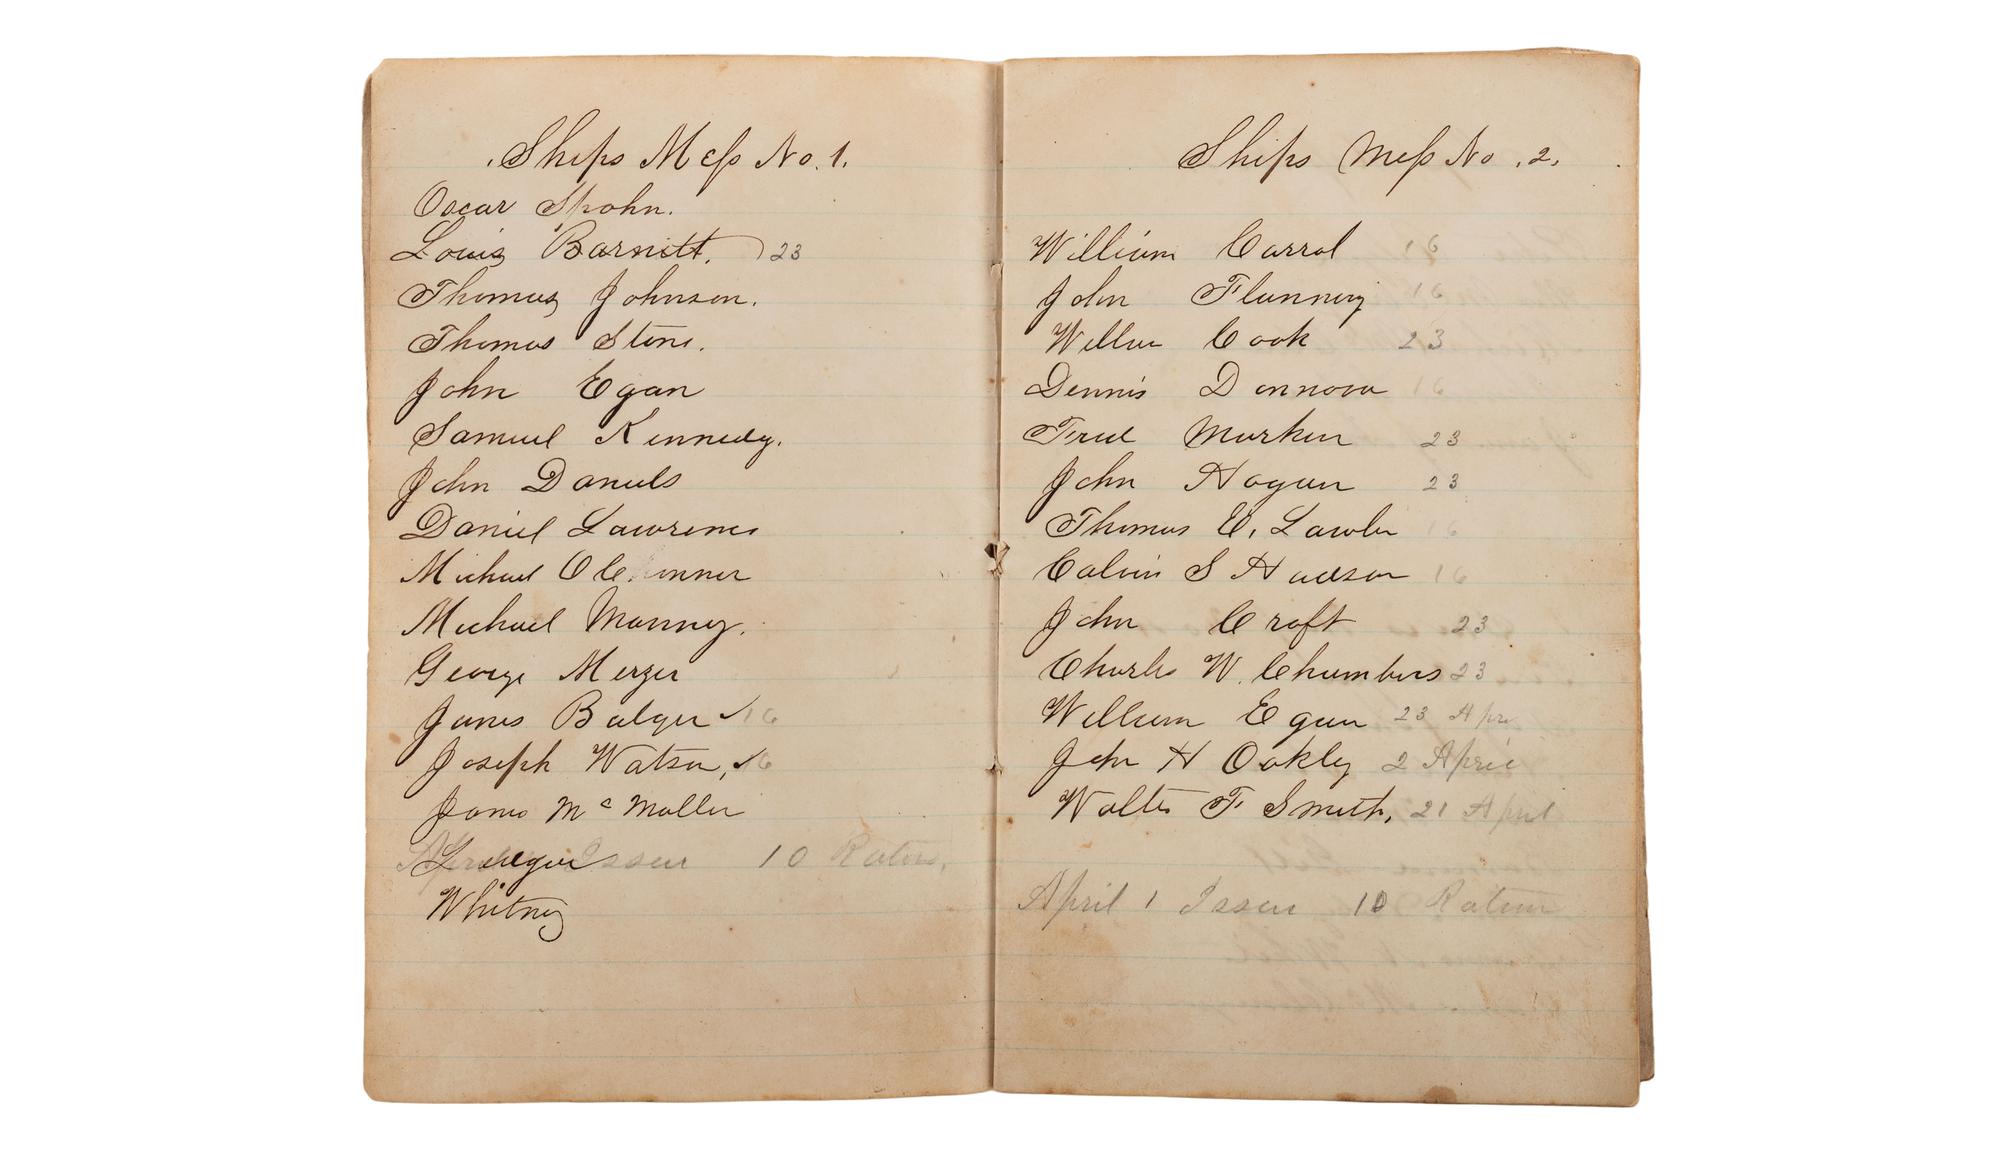 Ships Mess No. 1.
Oscar Spohn.
Louis Barnitt. 23
Thomas Johnson.
Thomas Stone.
John Egan
Samuel Kennedy.
John Daniels
Daniel Lawrence
Michael O
Michael Manny.
George Merzer
James Balger ✓ 16
Joseph Watson, ✓ 16
James McMullen
April Issue 10 Rations.
Whitney
Ships Mess No. 2.
William Carrol 16
John Flanning 16
William Cook 23
Dennis Donnovan 16
Fred Marken 23
John Hogan 23
Thomas E. Lawler 16
Calvin S Hudson 16
John Croft 23
Charles W. Chambers 23
William Egan 23 Apri
John H Oakley 2 April
Walter F Smith, 21 April
April 1 Issue 10 Rations